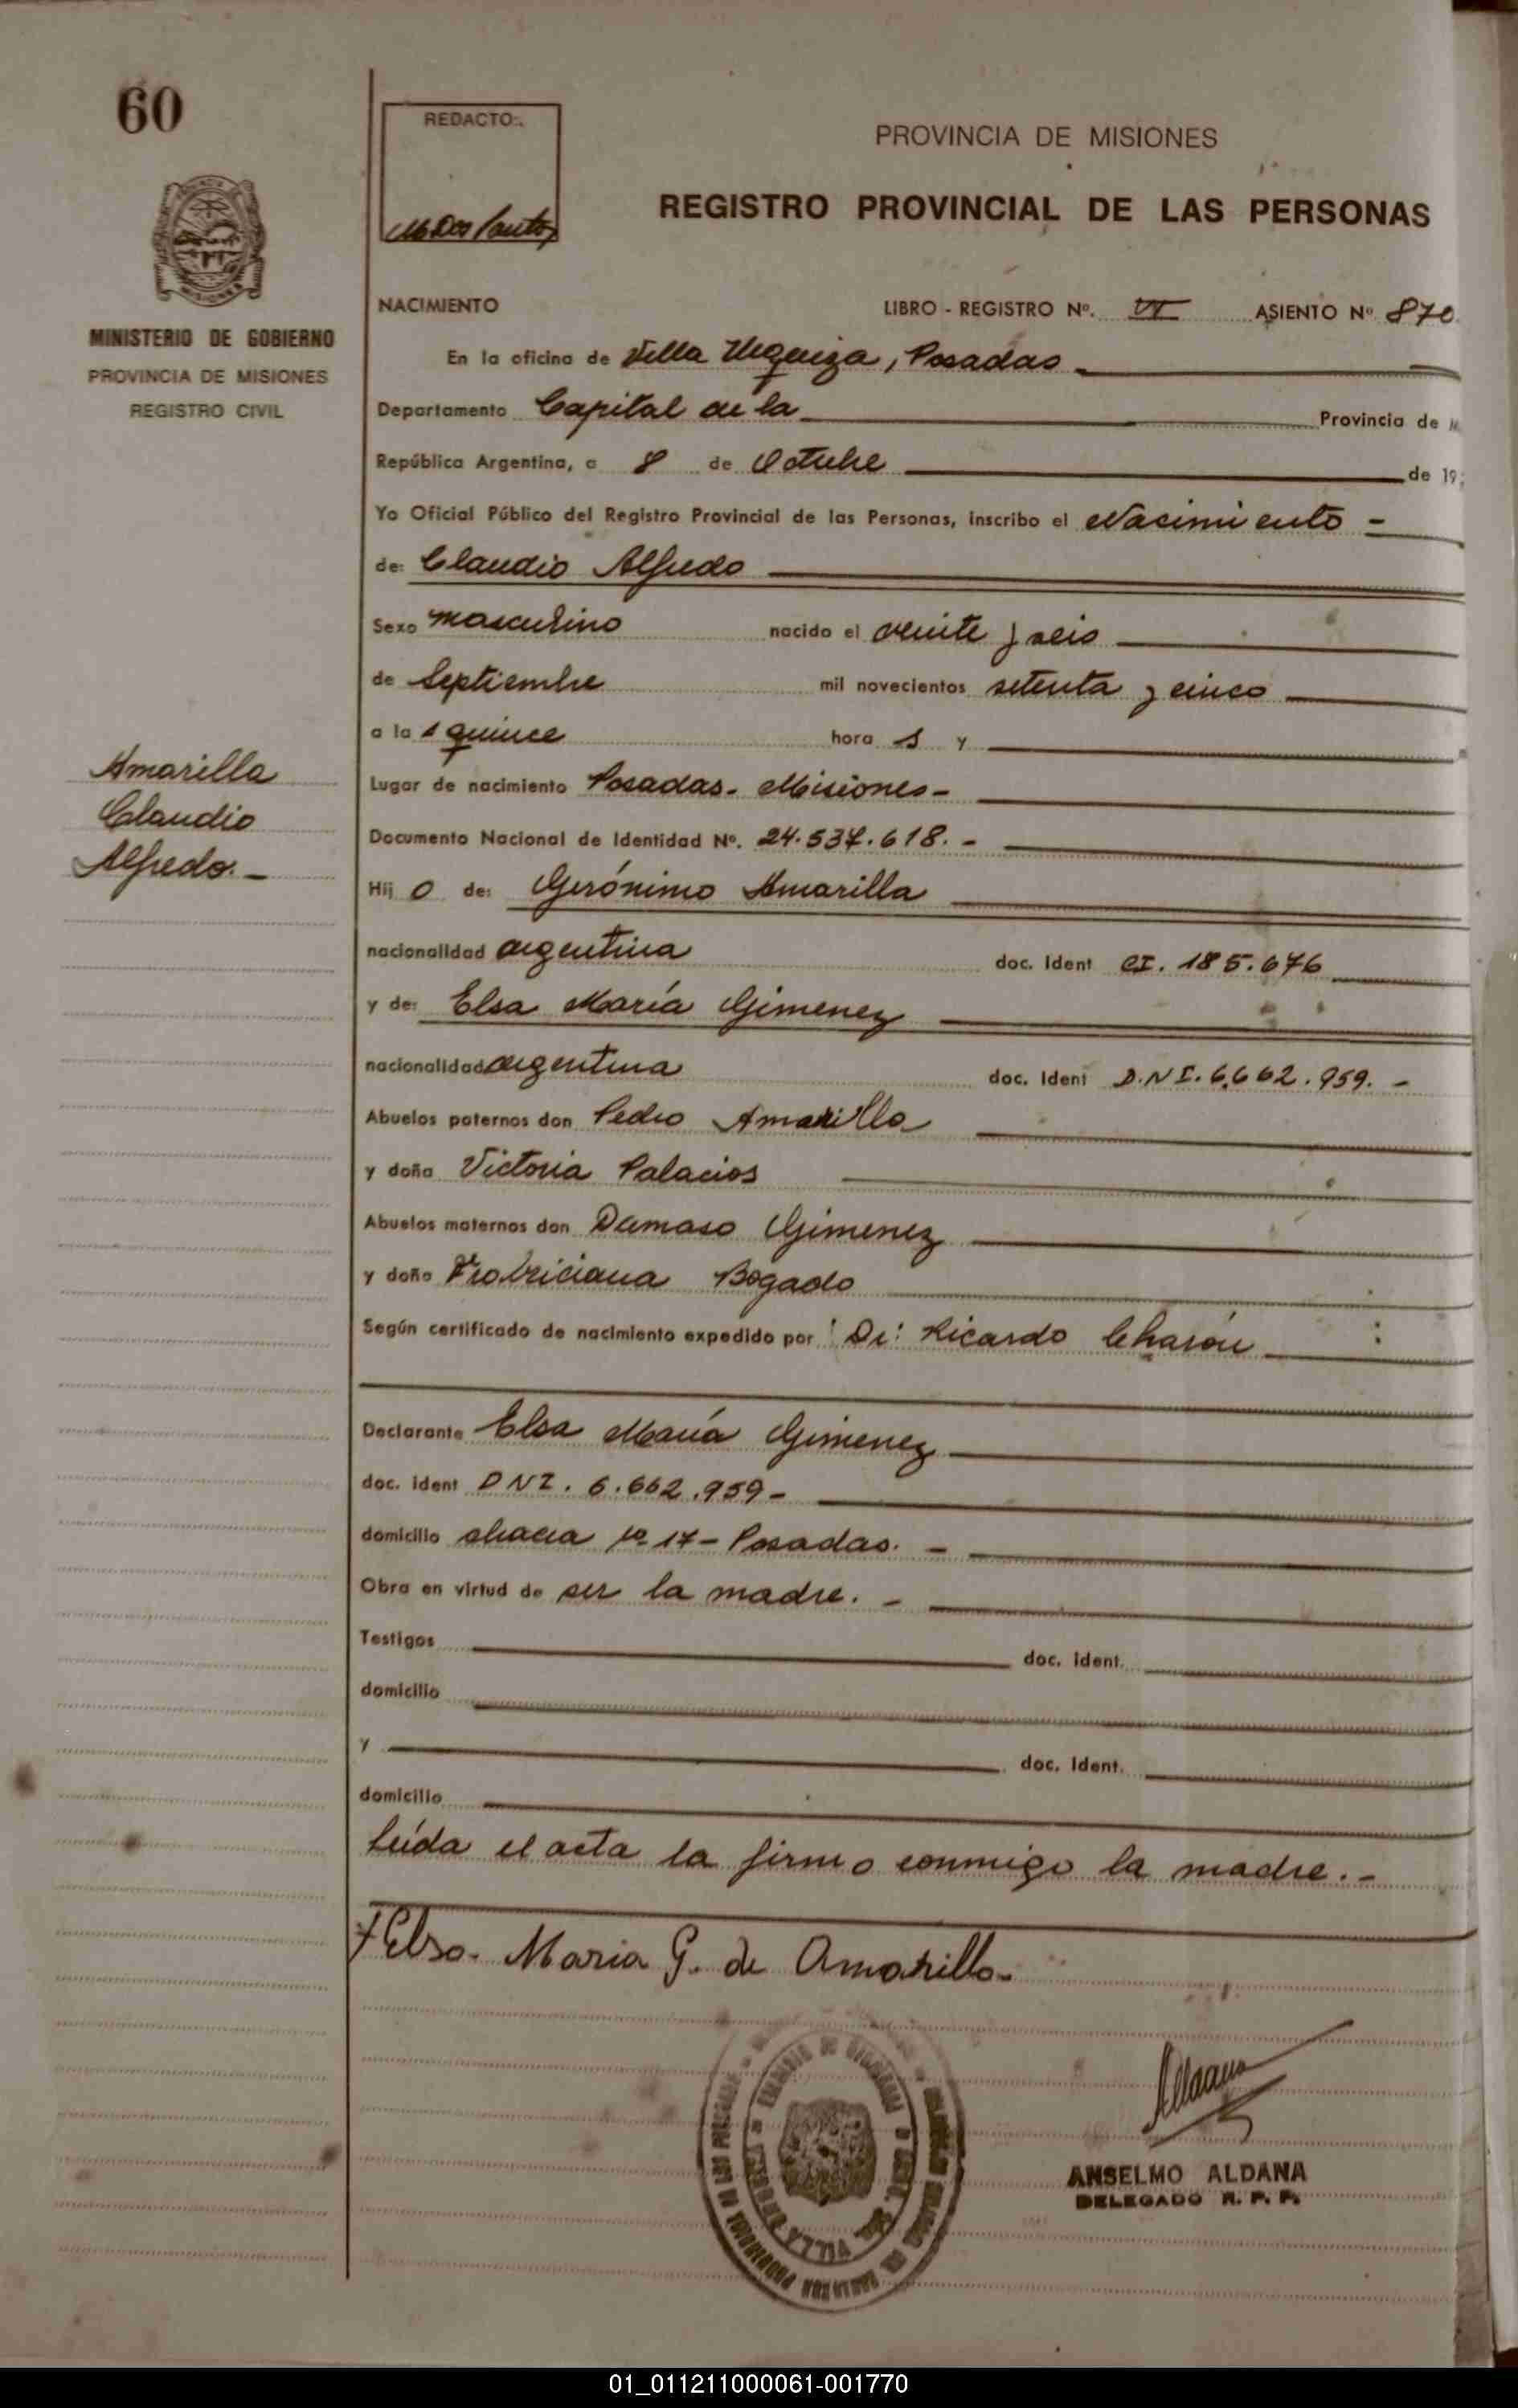 60
REDACTO:
PROVINCIA DE MISIONES
REGISTRO PROVINCIAL DE LAS PERSONAS
MISIONES
MINISTERIO DE GOBIERNO
PROVINCIA DE MISIONES
REGISTRO CIVIL
NACIMIENTO LIBRO - REGISTRO Nº. VI ASIENTO Nº 870
En la oficina de Villa Urquiza, Posadas
Departamento Capital de la Provincia de
República Argentina, a 8 de Octubre de 19
Yo Oficial Público del Registro Provincial de las Personas, inscribo el Nacimiento -
de: Claudio Alfredo
Sexo masculino nacido el veinte y seis
de Septiembre mil novecientos setenta y cinco
a la s quince hora s y
Amarilla
Claudio
Alfredo. -
Lugar de nacimiento Posadas - Misiones -
Documento Nacional de Identidad Nº. 24.537.618. -
Hij o de: Gerónimo Amarilla
nacionalidad argentina doc. Ident CI. 185.676
y de: Elsa María Gimenez
nacionalidad argentina doc. Ident D.N I. 6.662.959. -
Abuelos paternos don Pedro Amarilla
y doña Victoria Palacios
Abuelos maternos don Damaso Gimenez
y doña Bogado
Según certificado de nacimiento expedido por Dr: Ricardo
Declarante Elsa María Gimenez
doc. ident D N I. 6.662.959 -
domicilio chacra Nº 17 - Posadas. -
Obra en virtud de ser la madre. -
Testigos doc. ident.
domicilio
y doc. Ident.
domicilio
Leída el acta la firmo conmigo la madre. -
Elsa. Maria G. de Amarilla.
ANSELMO ALDANA
DELEGADO R. P. P.
01_011211000061-001770